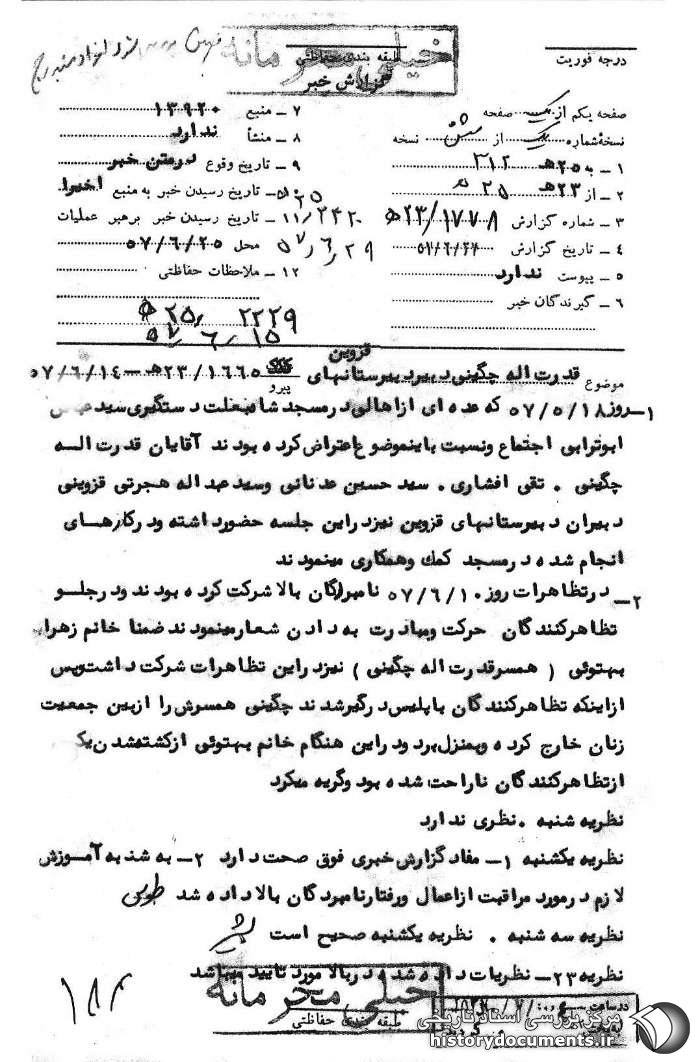 خیلی محرمانه
طبقه بندی حفاظتی
گزارش خبر
درجه فوریت
صفحه یکم از یک صفحه
نسخه شماره یک از شش نسخه
۱ ـ به ۲۵ هـ ۳۱۲
۲ ـ از ۲۳ هـ ۲۵
۳ ـ شماره گزارش ۲۳/۱۷۷۸ هـ
۴ ـ تاریخ گزارش
۵ ـ پیوست ندارد
۶ ـ گیرندگان خبر
۷ ـ منبع ۱۳۹۲۰
۸ ـ منشأ ندارد
۹ ـ تاریخ وقوع درمتن خبر
تاریخ رسیدن خبر به منبع اخیرا
۱۱ ـ تاریخ رسیدن خبر برهبر عملیات
محل ۵۷/۶/۲۵
۵۷/۶/۲۹
۱۲ ـ ملاحظات حفاظتی
۲۵ هـ ۲۲۲۹
۵۷/۶/۱۵
قزوین
موضوع قدرت اله چگینی دبیر دبیرستانهای
پیرو ۲۳/۱۶۶۵ هـ ـ ۵۷/۶/۱۴
۱ـ روز ۵۷/۵/۱۸ که عده ای از اهالی درمسجد شاه بعلت دستگیری سید عباس
ابوترابی اجتماع ونسبت باینموضوع اعتراض کرده بودند آقایان قدرت الـه
چگینی . تقی افشاری . سید حسین عدنانی وسید عبداله هجرتی قزوینی
دبیران دبیرستانهای قزوین نیزدراین جلسه حضورداشته ودرکارهـای
انجام شده درمسجد کمك وهمکاری مینمودند
۲ـ درتظاهرات روز ۵۷/۶/۱۰ نامبرگان بالا شرکت کرده بودند ودرجلـو
تظاهرکنندگان حرکت ومبادرت به دادن شعارمینمودند ضمنا خانم زهرا
بهتوئی ( همسرقدرت اله چگینی ) نیزدراین تظاهرات شرکت داشت وپس
ازاینکه تظاهرکنندگان باپلیس درگیرشدند چگینی همسرش را ازبین جمعیت
زنان خارج کرده وبمنزل برد ودراین هنگام خانم بهتوئی ازکشته شدن یک
ازتظاهرکنندگان ناراحت شده بود وگریه میکرد
نظریه شنبه . نظری ندارد
نظریه یکشنبه ۱ـ مفاد گزارش خبری فوق صحت دارد ۲ـ به شنبه آمـوزش
لازم درمورد مراقبت ازاعمال ورفتارنامبردگان بالاداده شد طوسی
نظریه سه شنبه . نظریه یکشنبه صحیح است
نظریه ۲۳ـ نظریات داده شده دربالا مورد تایید میباشد
خیلی محرمانه
طبقه بندی حفاظتی
در ساعت
مرکز بررسی اسناد تاریخی
historydocuments.ir